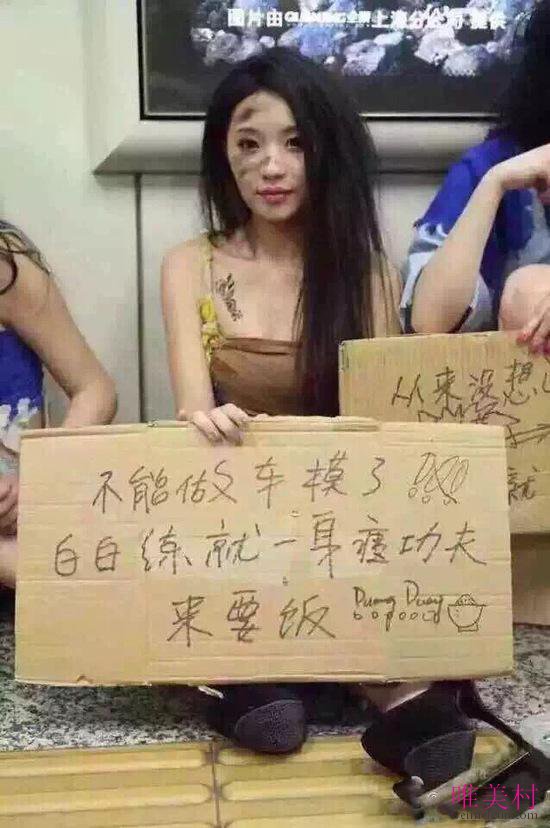 图片由
上海分公司 提供
不能做女车模了!!!
白白练就一身瘦功夫
来要饭 Duang Duang
从来没想
就
唯美村